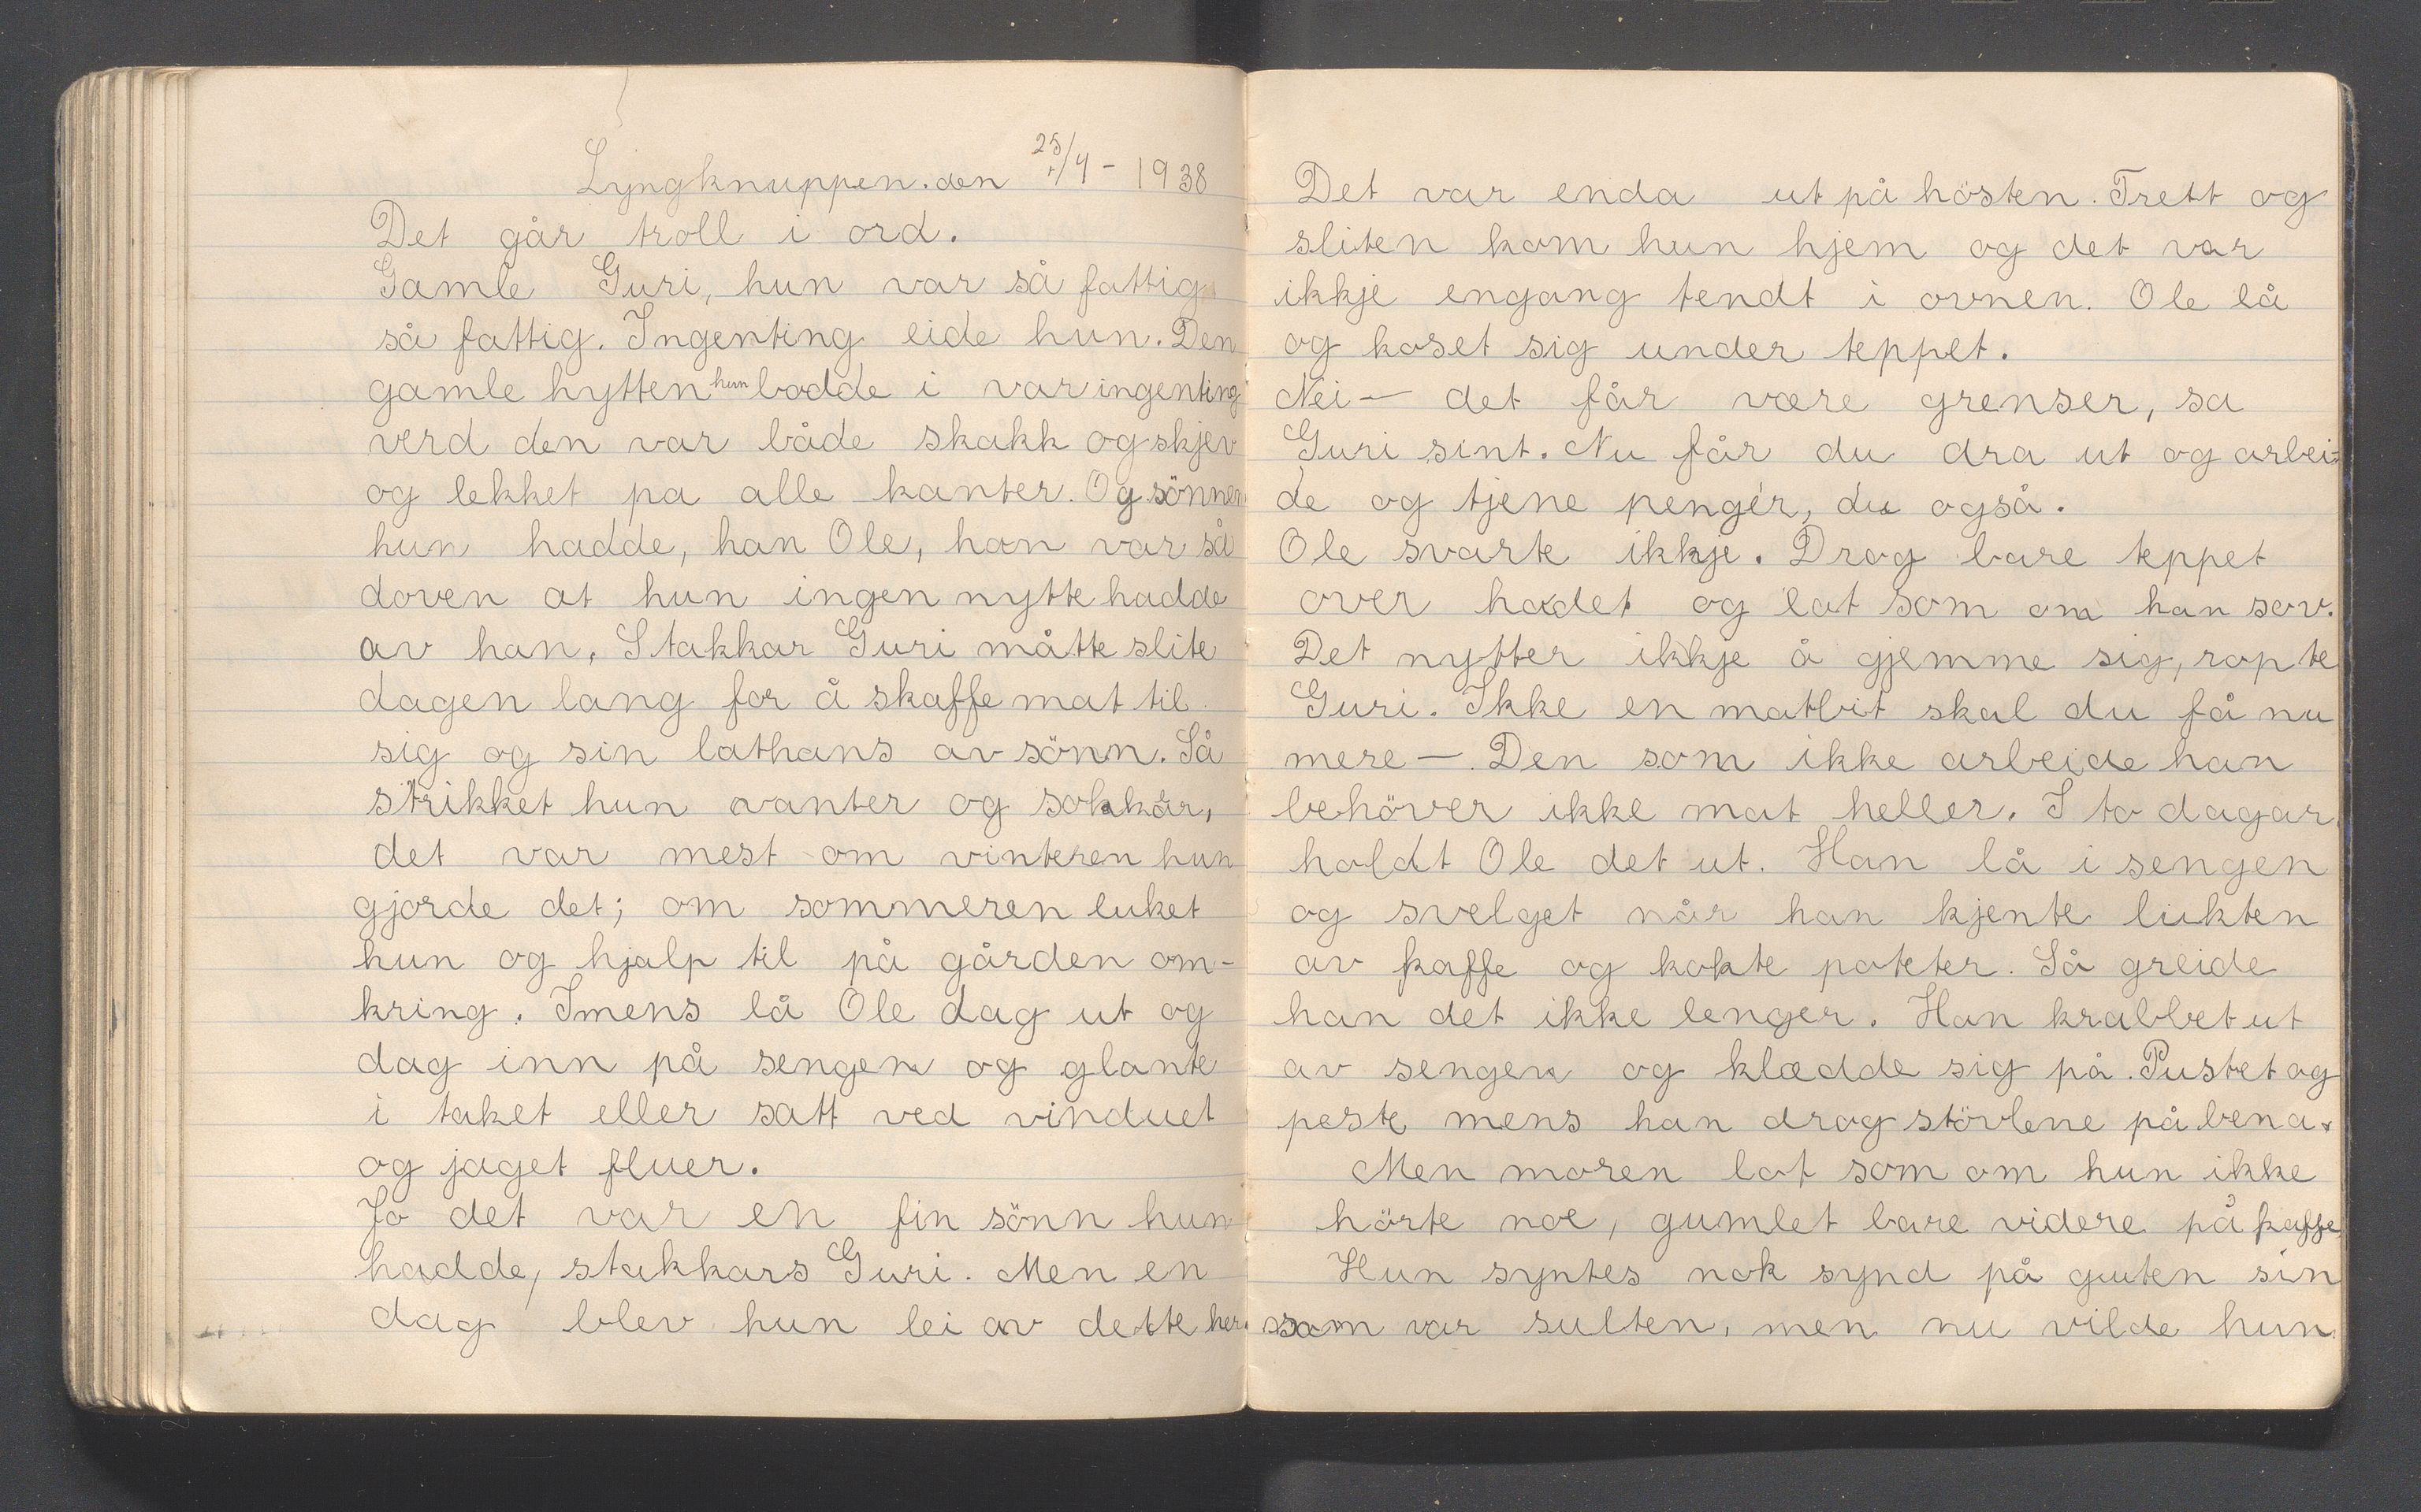 Lyngknuppen. den 25/4 - 1938
Det går troll i ord.
Gamle Guri, hun var så fattig
så fattig. Ingenting eide hun. Den
gamle hytten hun bodde i var ingenting
verd den var både skakk og skjev
og lekket pa alle kanter. Og sönnen
hun hadde, han Ole, han var så
doven at hun ingen nytte hadde
av han, Stakkar Guri måtte slite
dagen lang for å skaffe mat til
sig og sin lathans av sönn. Så
strikket hun vanter og sokkar,
det var mest om vinteren hun
gjorde det; om sommeren luket
hun og hjalp til på gården om-
kring. Imens lå Ole dag ut og
dag inn på sengen og glante
i taket eller satt ved vinduet
og jaget fluer.
Jo det var en fin sönn hun
hadde, stakkars Guri. Men en
dag blev hun lei av dette her
Det var enda ut på hösten. Trett og
sliten kom hun hjem og det var
ikkje engang tendt i ovnen. Ole lå
og koset sig under teppet.
Nei - det får være grenser, sa
Guri sint. Nu får du dra ut og arbei-
de og tjene penger, du også.
Ole svarte ikkje. Drog bare teppet
over hodet og lot som om han sov.
Det nytter ikkje å gjemme sig, ropte
Guri. Ikke en matbit skal du få nu
mere - Den som ikke arbeide han
behöver ikke mat heller. I to dagar
holdt Ole det ut. Han lå i sengen
og svelget når han kjente lukten
av kaffe og kokte poteter. Så greide
han det ikke lenger. Han krabbet ut
av sengen og klædde sig på. Pustet og
peste mens han drog stövlene på bena.
Men moren lot som om hun ikke
hörte noe, gumlet bare videre på kaffe
Hun syntes nok synd på guten sin
som var sulten, men nu vilde hun